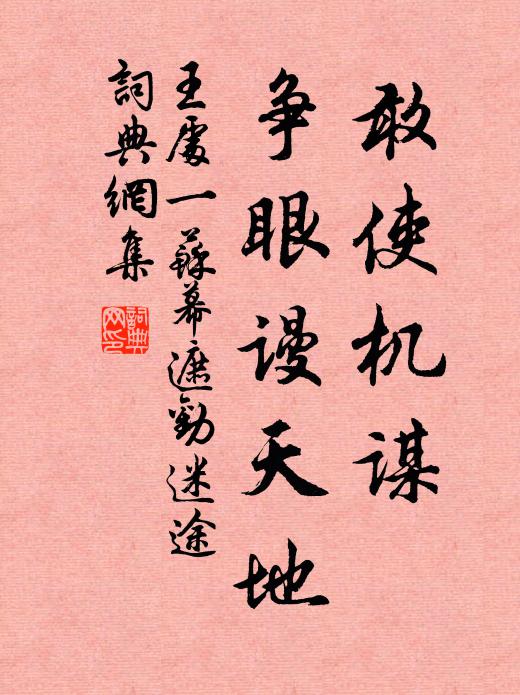 敢使机谋
争眼谩天地
王處一蘇幕遮勸迷途
詞典網集
詞典网印